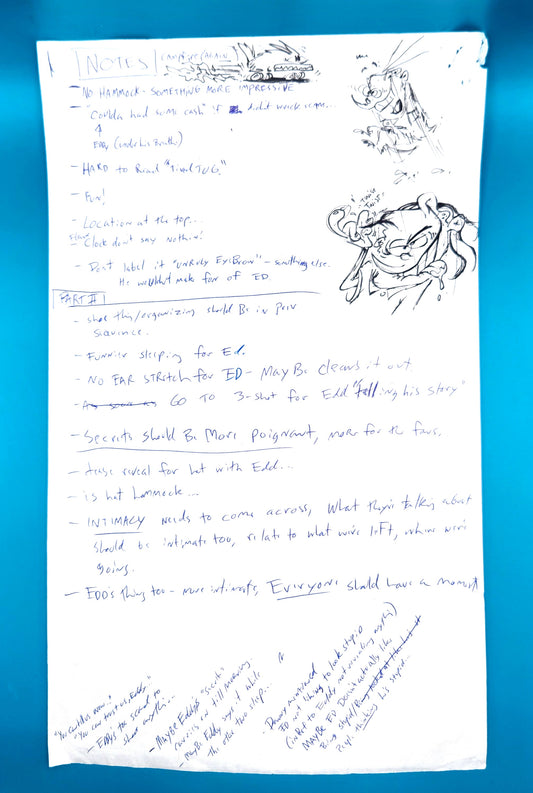 NOTES CAMPFIRE AGAIN
- NO HAMMOCK - SOMETHING MORE IMPRESSIVE
- "Coulda had some cash" if didn't wreck
EDDY (under his breath)
- HARD to Read
- Fun!
- Location at the top...
- Clock don't say Nothin'!
- Don't label it "UNRULY EYEBROW" - something else.
He wouldn't make fun of ED.
PART II
- thing/organizing should Be in
Sequence.
- FUNNIER sleeping for Ed.
- NO EAR STRETCH for ED - MAYBE cleans it out.
- GO TO 3-shot for Edd "telling his story"
- Secrets should Be More Poignant, more for the fans.
- tease reveal for hat with Edd...
- is hat hammock...
- INTIMACY needs to come across, What they're talking about
should be intimate too, relate to what we've left, where we're
going.
- EDD'S thing too - more intimate, EVERYONE should have a moment
"You can tell us now..."
"You can trust us, Eddy."
- EDDY'S too scared to
share anything...
- MAYBE EDDY'S "secret"
carries on till morning
- MAYBE Eddy says it while
the other two sleep...
- Danny mentioned
ED not liking to look stupid
(in Ref to Eddy not revealing anything)
MAYBE ED Doesn't actually like
Being stupid/
People thinking his stupid...
TWIST
TWIST